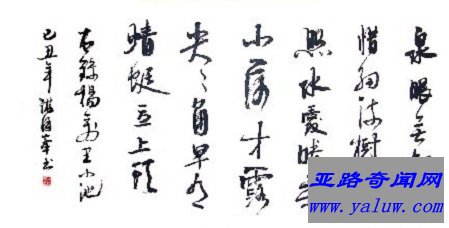 泉眼無
惜細流樹
照水愛晴
小荷才露
尖々角早有
蜻蜓立上頭
右錄楊萬里小池
己丑年
亚路奇闻网
www.yaluw.com